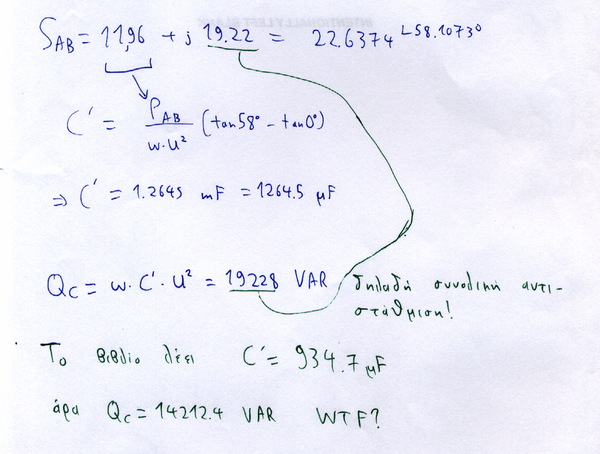 S_AB = 11,96 + j 19.22 = 22.6374 ∠58.1073°
C' = P_AB / w·U² (tan58° - tan0°)
⇒ C' = 1.2645 mF = 1264.5 μF
Q_C = w·C'·U² = 19228 VAR δηλαδή συνολική αντι-
στάθμιση!
Το βιβλίο λέει C' = 934.7 μF
άρα Q_C = 14212.4 VAR WTF?